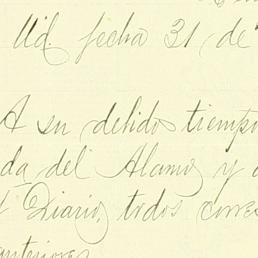 Ud. fecha 31 de
A su debidos tiempo
da del Alamo y
Diario, todos corres
anteriores